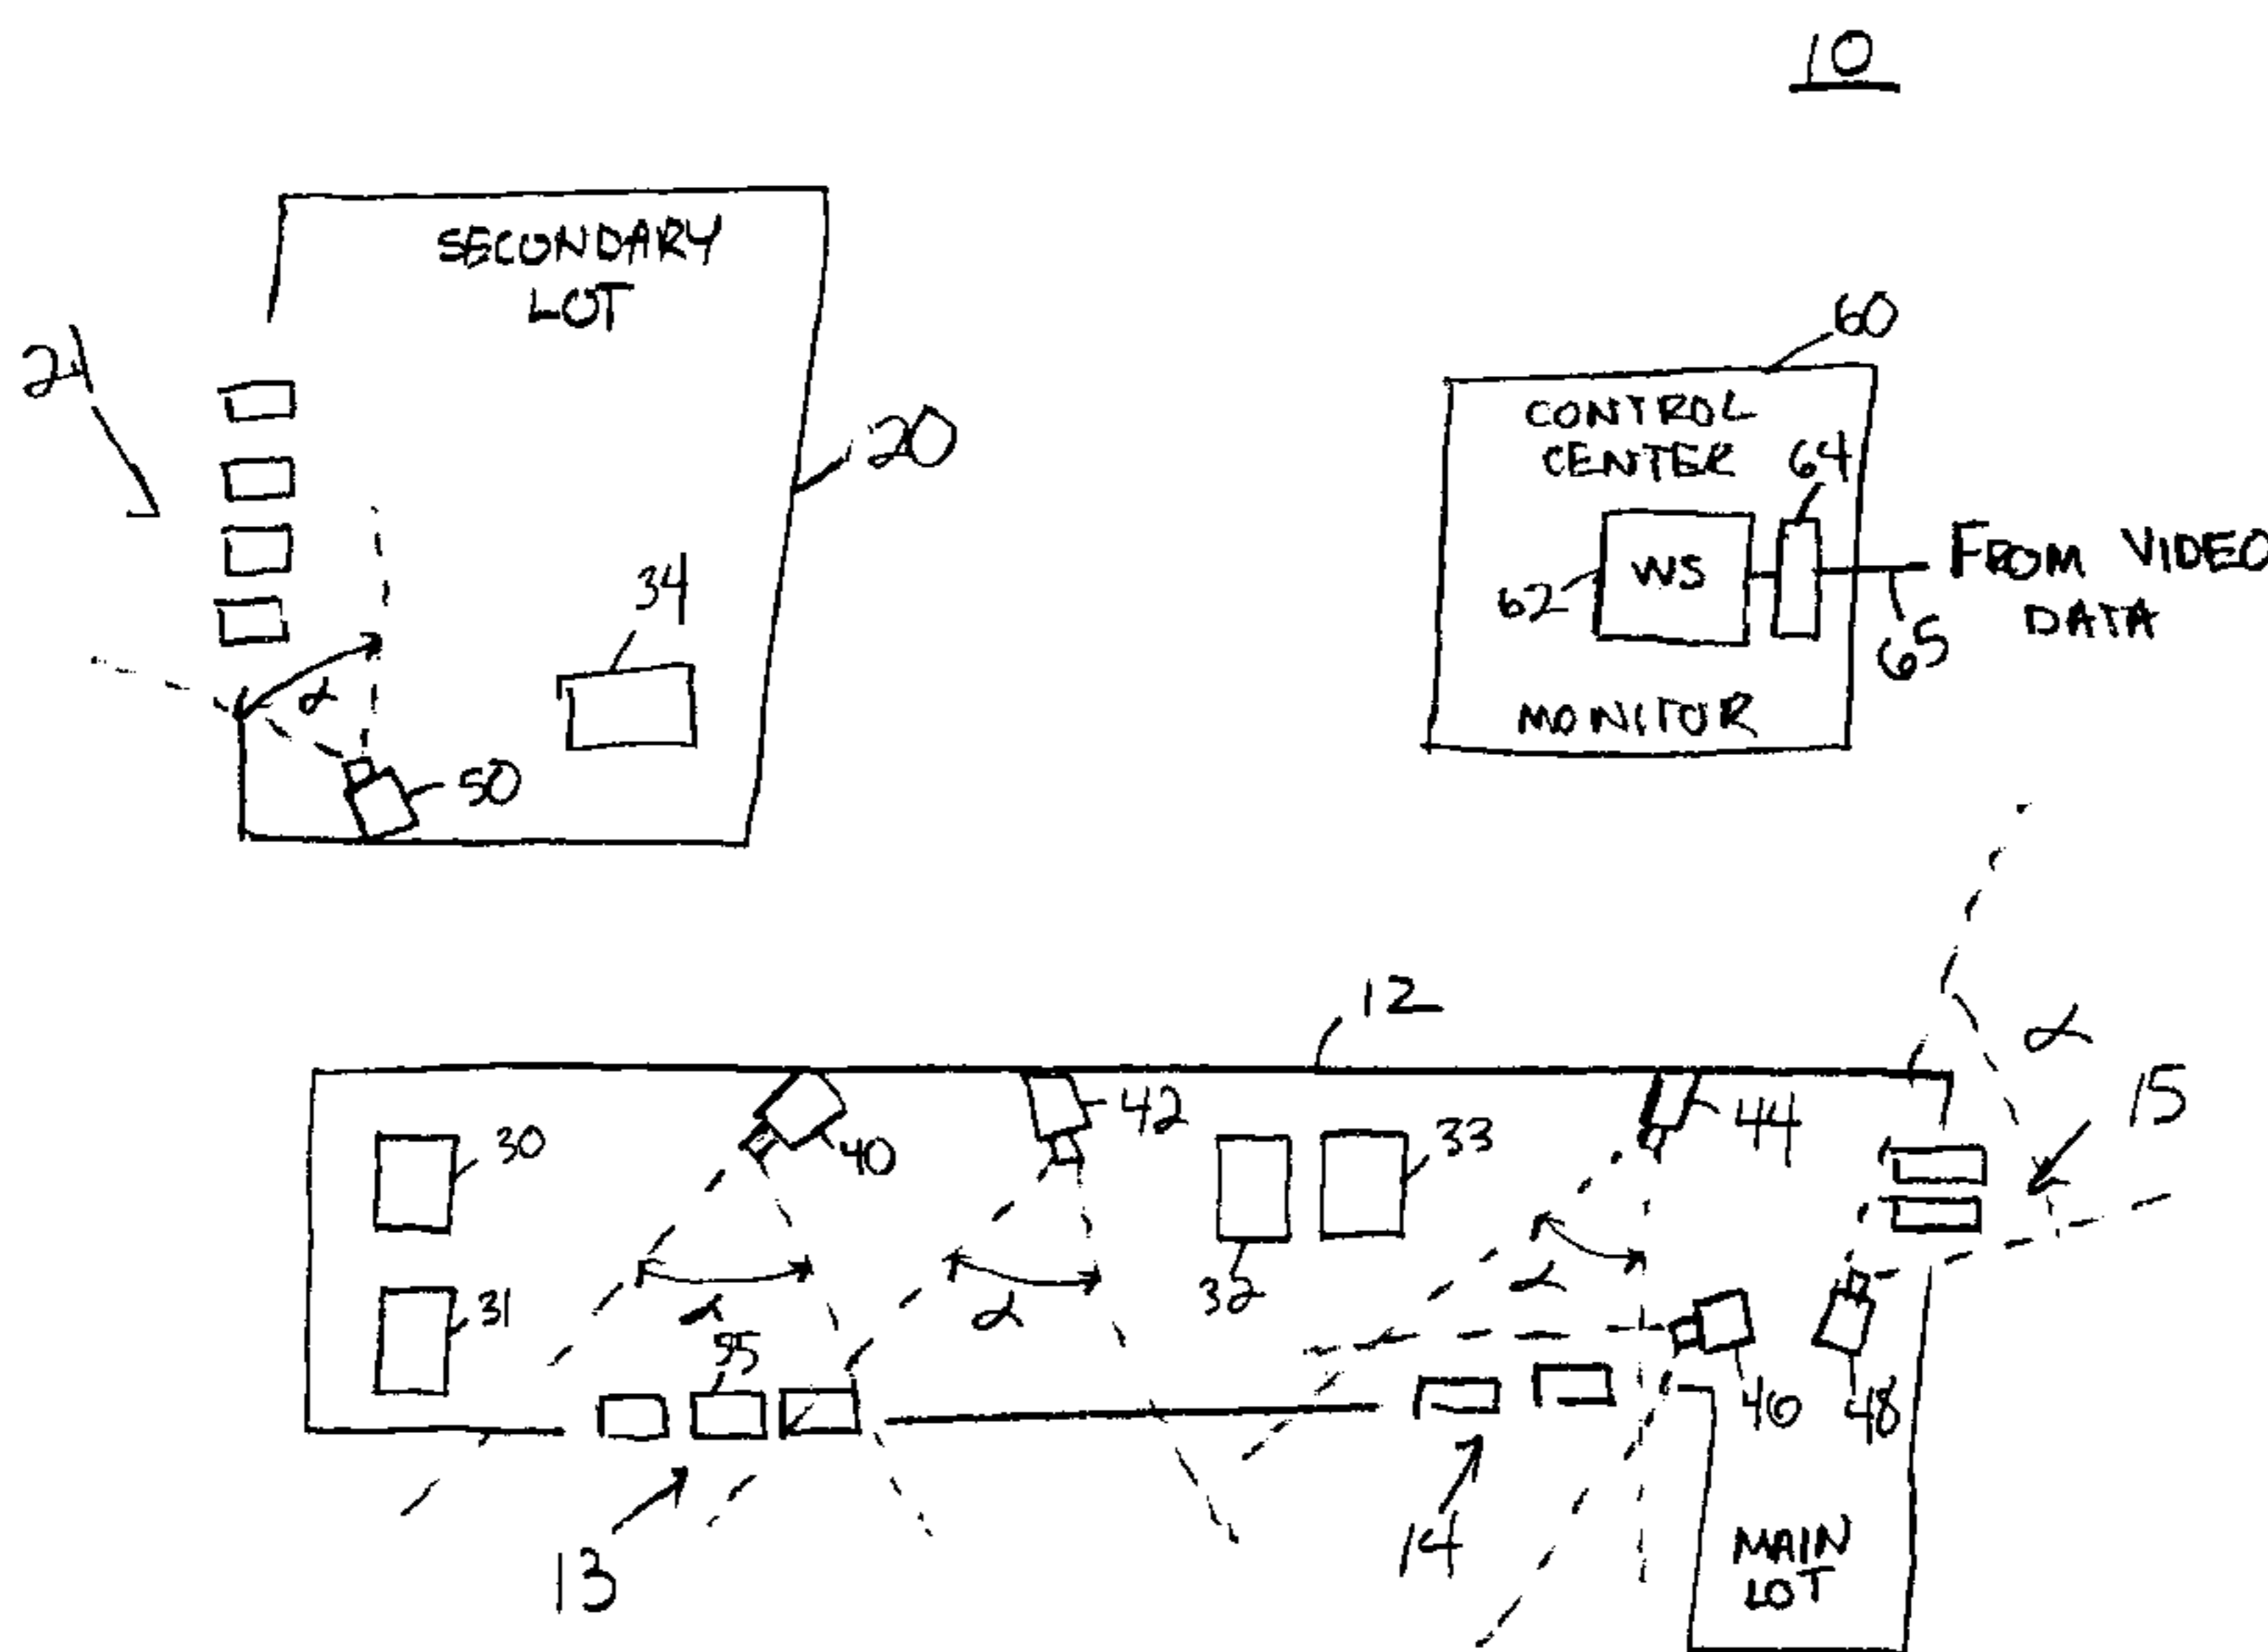 10
SECONDARY
LOT
21
20
34
α
50
60
CONTROL
CENTER
64
WS
62
FROM VIDEO
DATA
65
MONITOR
12
α
15
30
40
42
33
44
31
α
α
32
α
35
46
48
13
14
MAIN
LOT